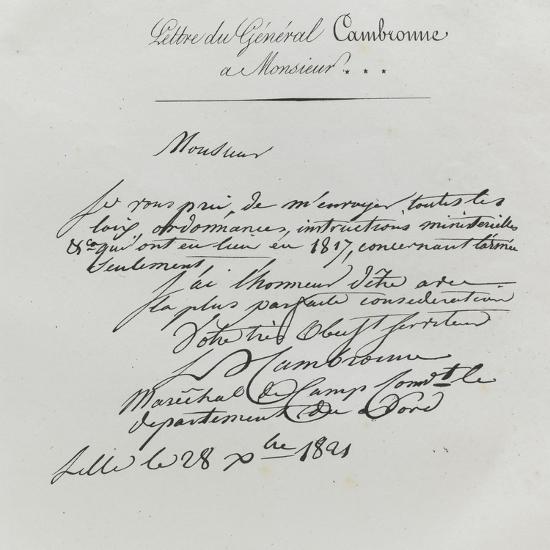 Lettre du Général Cambronne
a Monsieur ***
Monsieur
Je vous prie, de m'envoyer toutes les
loix, ordonnances, instructions ministerielles
&ca qui ont eu lieu en 1817, concernant l'armée
Seulement.
J'ai l'honneur d'être avec
la plus parfaite consideration
Votre très Obeïst Serviteur
Cambronne
Maréchal de Camp Comdt le
departement du Nord
Lille le 28 Xbre 1821